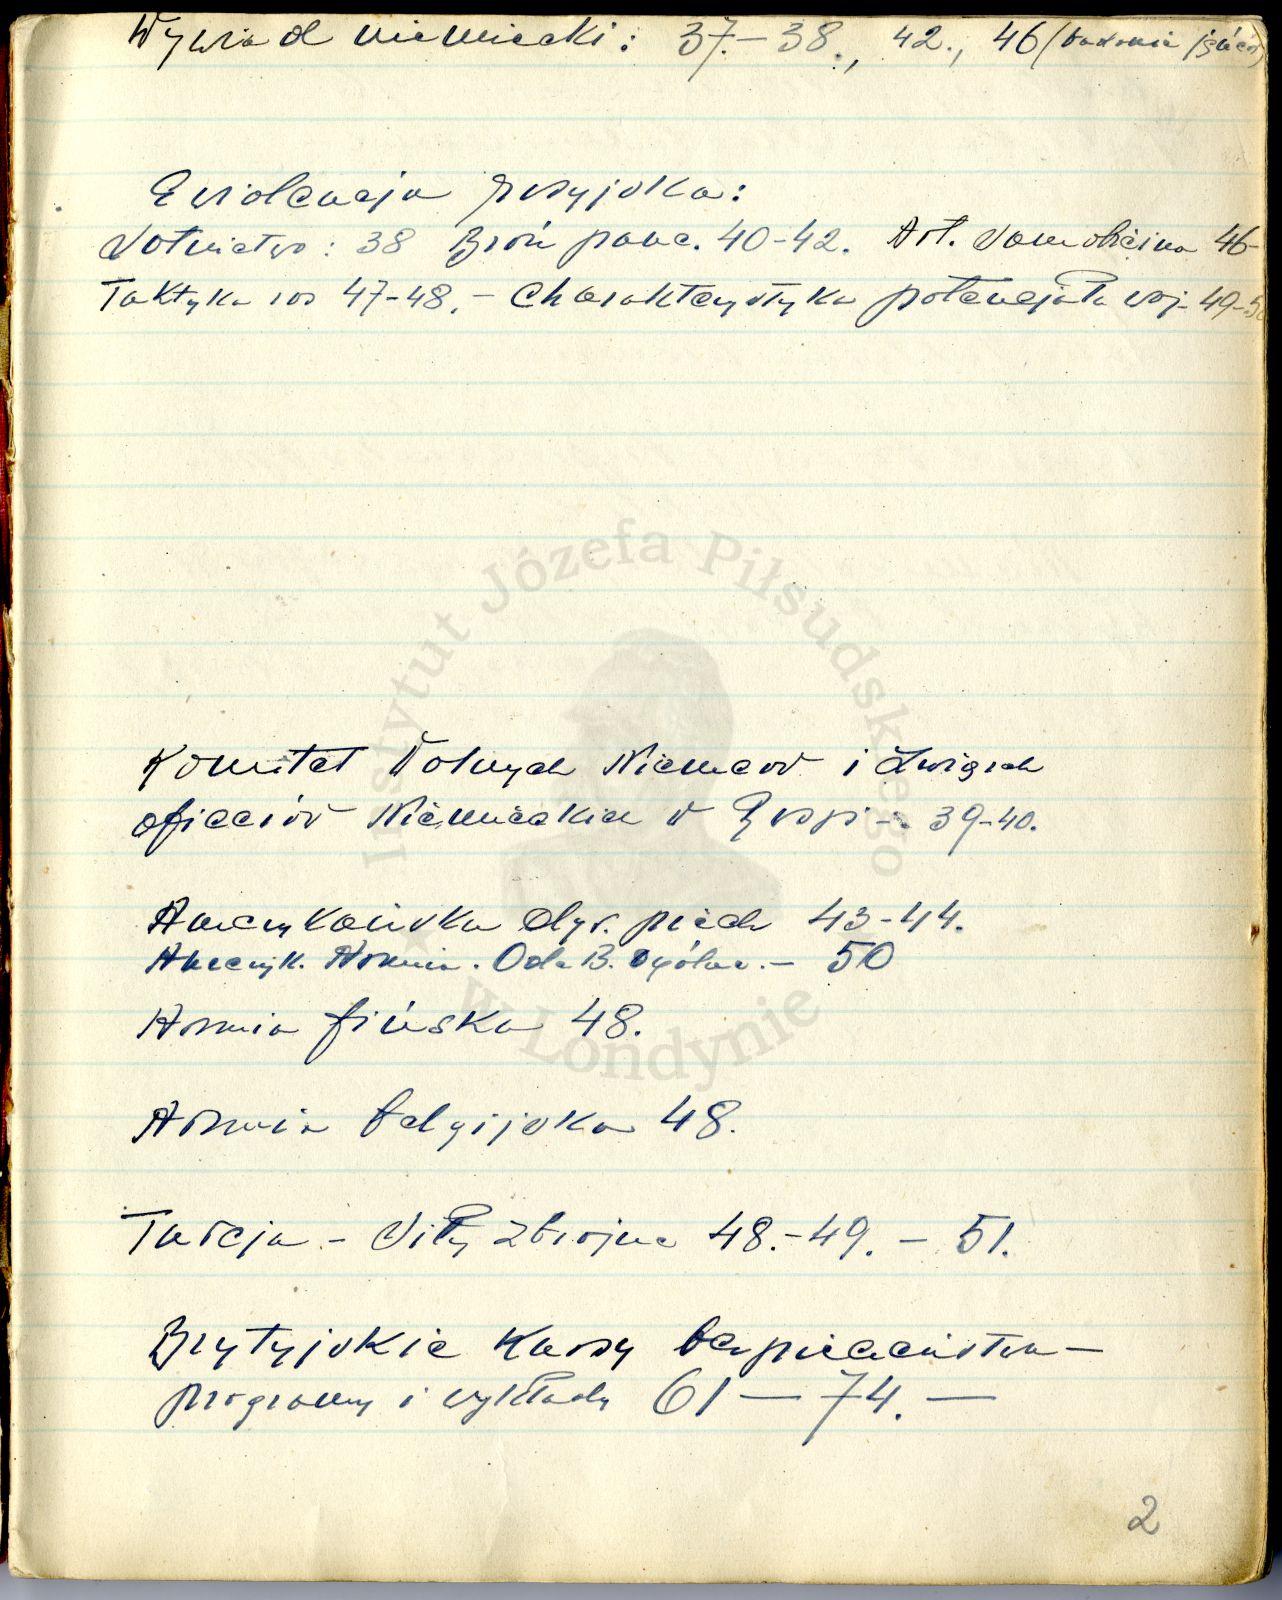 Wywiad niemiecki: 37.-38., 42., 46 (badanie jeńców)
Ewidencja rosyjska:
Lotnictwo: 38 Broń panc. 40-42. Art. samobieżna 46-
Taktyka ros 47-48. - Charakterystyka potencjału woj. 49-50
Instytut Józefa Piłsudskiego
w Londynie
Komitet Wolnych Niemców i Związek
oficerów Niemieckich w Rosji - 39-40.
Amerykańska dyw. piech 43-44.
Ameryk. Armia. Ode B. Ogólne. - 50
Armia fińska 48.
Armia belgijska 48.
Turcja - Siły zbrojne 48.-49. - 51.
Brytyjskie kursy bezpieczeństwa -
programy i wykłady 61 - 74. -
2